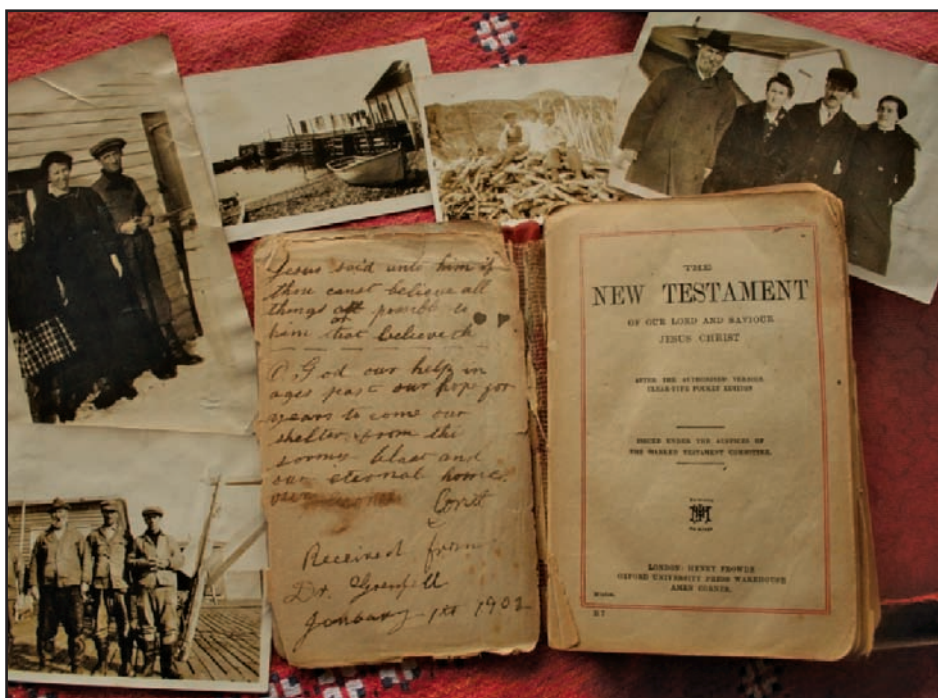 Jesus said unto him if
thou canst believe all
things are possible to
him that believeth
O God our help in
ages past our hope for
years to come our
shelter from the
stormy blast and
our eternal home.
Received from
Dr. Grenfell
January 1st 1902
THE
NEW TESTAMENT
OF OUR LORD AND SAVIOUR
JESUS CHRIST
AFTER THE AUTHORISED VERSION
CLEAR-TYPE POCKET EDITION
ISSUED UNDER THE AUSPICES OF
THE MARKED TESTAMENT COMMITTEE.
LONDON: HENRY FROWDE
OXFORD UNIVERSITY PRESS WAREHOUSE
AMEN CORNER.